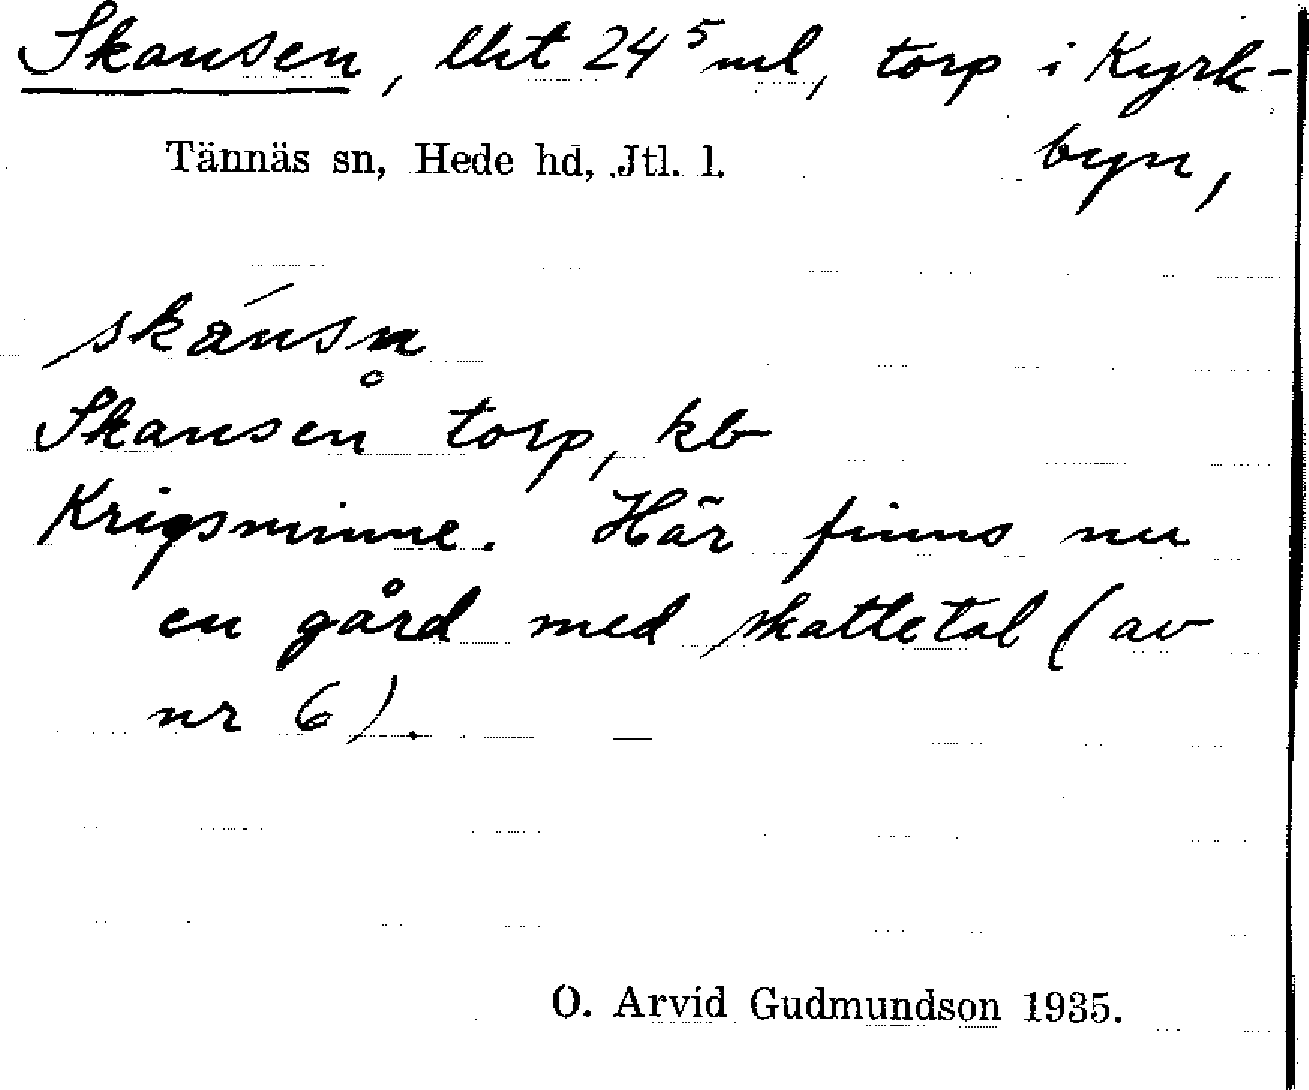 Skansen, llit 24⁵ ml, torp i Kyrk-
byn,
Tännäs sn, Hede hd, Jtl. l.
skánsn̥
Skansen torp, kb
Krigsminne. Här finns nu
en gård med skattetal (av
nr 6). —
O. Arvid Gudmundson 1935.